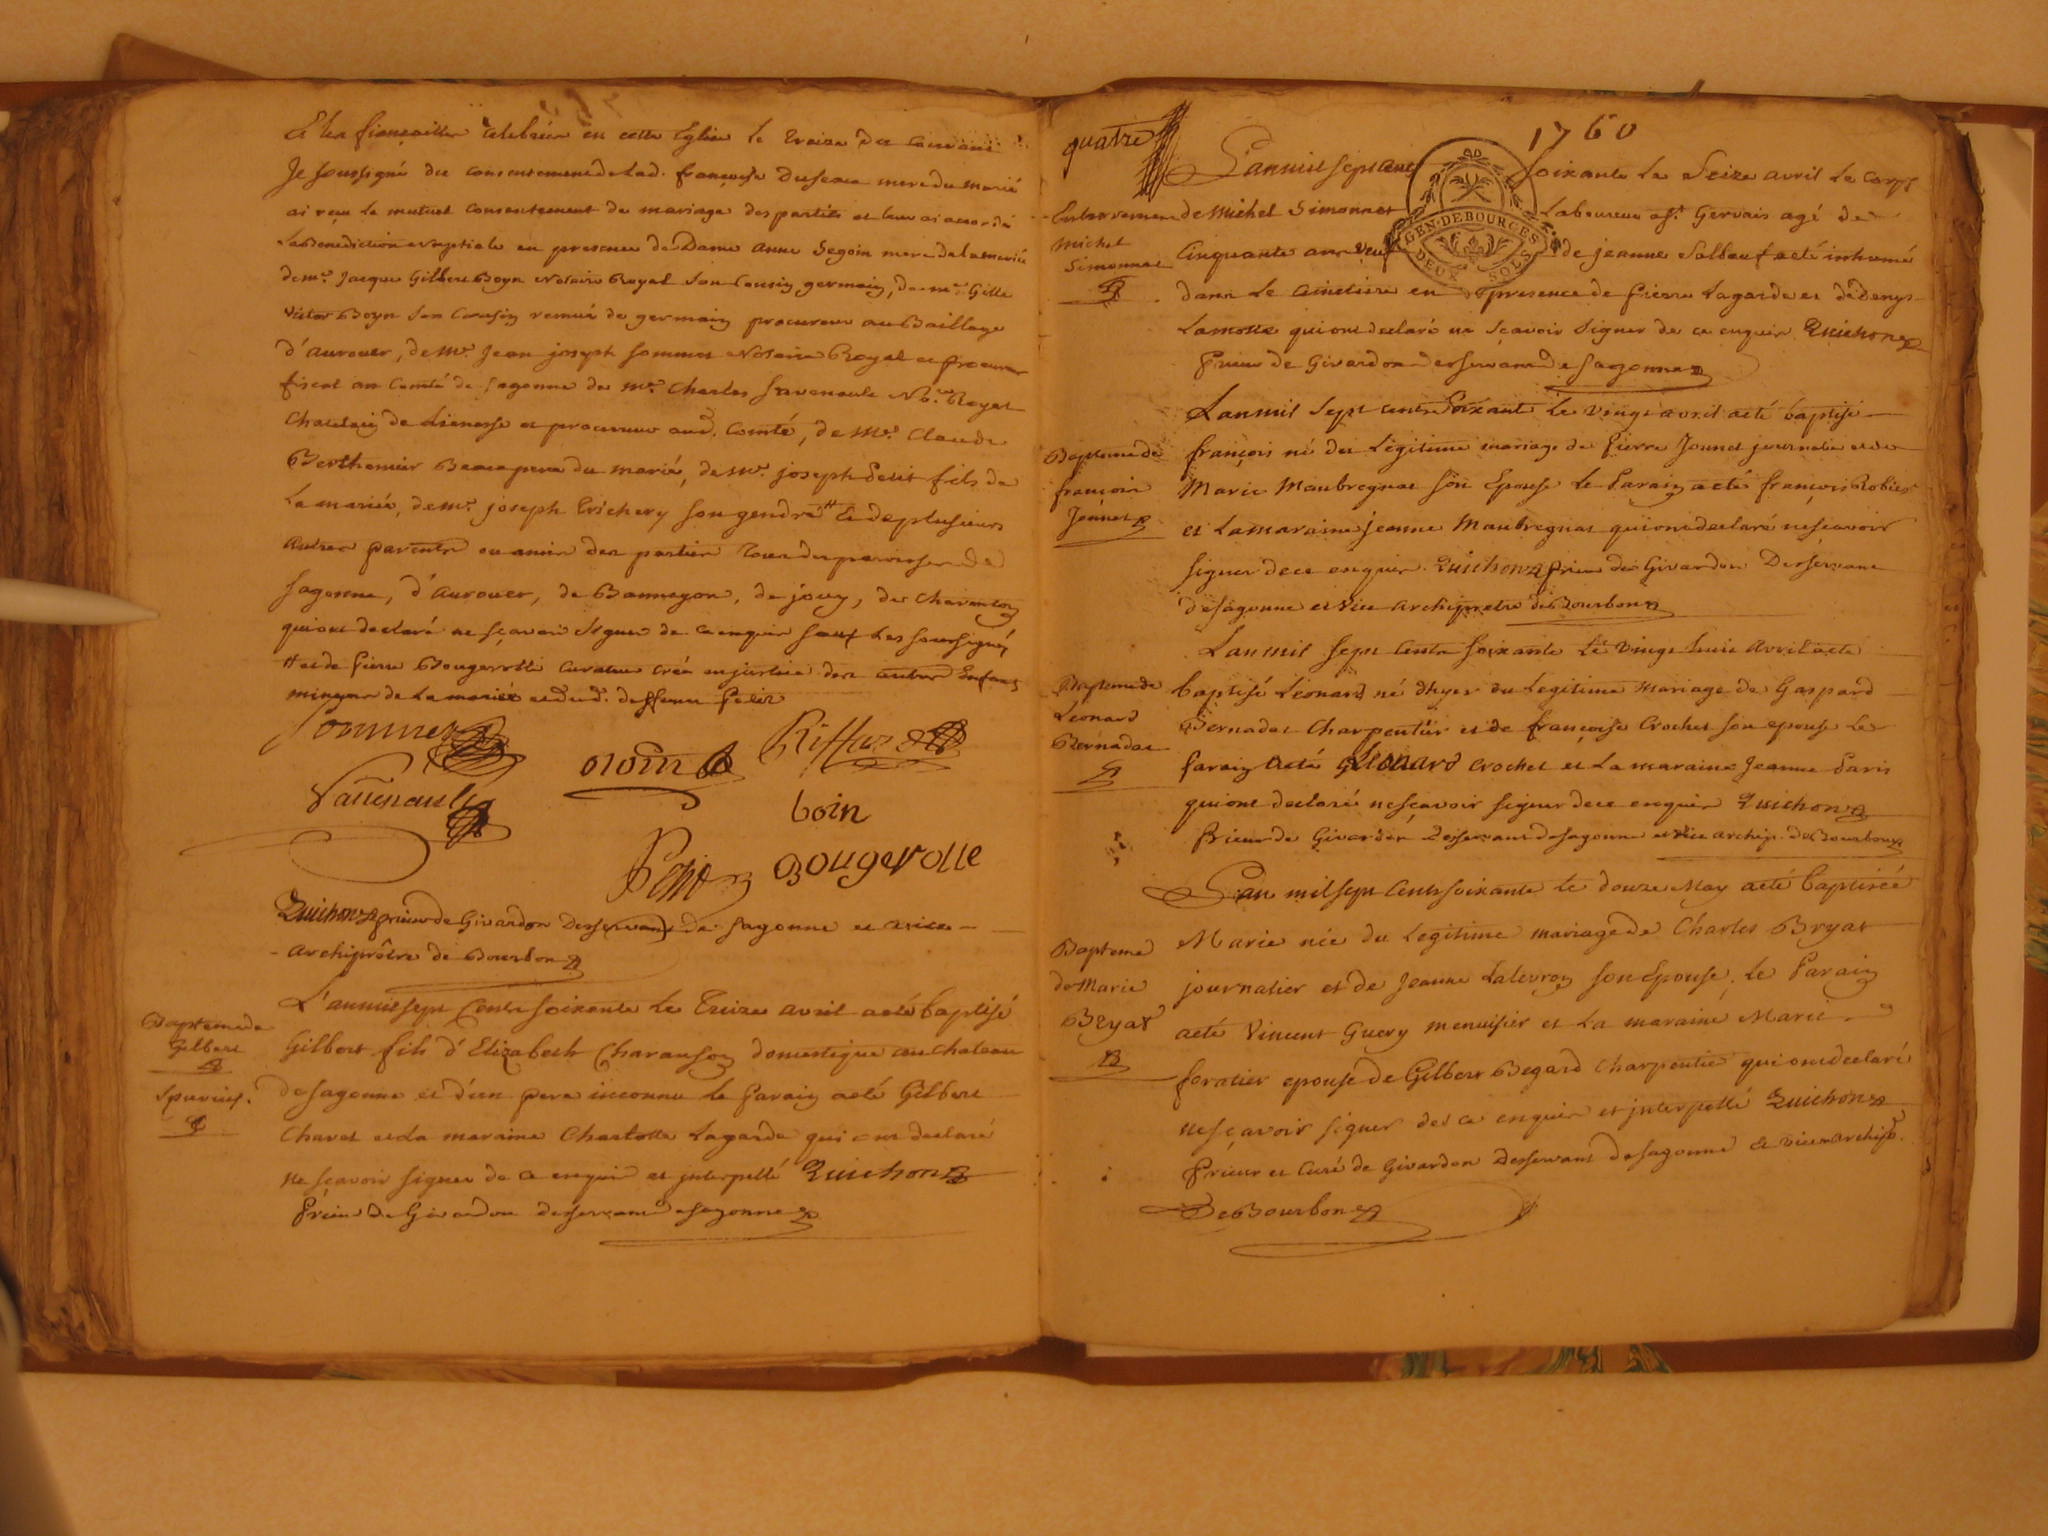 Et les fiançailles celebrées en cette Eglise le treize du courant
Je soussigné du consentement de lad. françoise Duseau mere du marié
ai reçu le mutuel consentement de mariage des parties et leur ai accordé
la Benediction nuptiale en presence de Dame anne Segoin mere de la mariée
de mr. Jacque Gilbert Boyn Notaire Royal son Cousin germain, de mr. Gille
victor Boyn son Cousin remué de germain procureur au Baillage
d'aurouer, de Mr. Jean joseph Sommer Notaire Royal et procureur
fiscal au Comté de Sagonne de Mr. Charles Savenault No.re Royal
Chatelain de et procureur aud. Comté, de Mr. Claude
Berthomier Beaupere du marié, de Mr. joseph Petit fils de
la mariée, de mr. joseph Trichery son gendre # Et de plusieurs
autres parents ou amis des parties tous des paroisses de
Sagonne, d'aurouer, de Bannegon, de jouy, de Charenton
qui ont declaré ne sçavoir signer de ce enquis sauf les soussignés
# et de Pierre Bougerolle curateur créé en justice des autres Enfans
mineurs de la mariée et dud. deffunt Petit
Sommer
noin
Riffar
Savenault
boin
Petit
Bougerolle
Quichon prieur de Givardon Desservant de Sagonne et vice
archiprêtre de Bourbon
Baptême de
Gilbert
Spurius.
L'an mil sept Cents soixante le Treize avril a eté baptisé
Gilbert fils d'Elizabeth Charanson domestique au chateau
de Sagonne et d'un pere inconnu le Parain a eté Gilbert
Charet et la maraine Charlotte Lagarde qui ont declaré
ne sçavoir signer de ce enquis et interpellé Quichon
Prieur de Givardon desservant Sagonne
quatre
1760
GEN. DE BOURGES
DEUX SOLS
Enterrement
Michel
Simonnet
L'an mil sept cents Soixante le Seize avril le corps
de Michel Simonnet Laboureur a St. Gervais agé de
Cinquante ans veuf de jeanne a eté inhumé
dans le cimetiere en presence de Pierre Lagarde et de Denys
Lamotte qui ont declaré ne sçavoir signer de ce enquis Quichon
Prieur de Givardon desservant de Sagonne
Baptême de
françois
Jonnet
L'an mil sept cents Soixante le vingt avril a eté baptisé
françois né du Légitime mariage de Pierre Jonnet journalier et de
Marie Maubregnat son Epouse le Parain a eté françois Robies
et La maraine jeanne Maubregnat qui ont declaré ne scavoir
signer de ce enquis. Quichon prieur de Givardon Desservant
de Sagonne et vice archipretre de Bourbon
Baptême de
Léonard
Bernadat
L'an mil sept cents soixante le vingt huit avril a eté
baptisé Léonard né d'hyer du Legitime mariage de Gaspard
Bernadat Charpentier et de françoise Crochet son epouse Le
Parain a eté Léonard Crochet et La maraine Jeanne Paris
qui ont declaré ne sçavoir signer de ce enquis Quichon
Prieur de Givardon Desservant de Sagonne et vice archip. de Bourbon
Baptême
de Marie
Bryat
L'an mil sept Cents soixante le douze May a eté baptisée
Marie née du Legitime mariage de Charles Bryat
journalier et de Jeanne Lalevron son Epouse, le Parain
a eté Vincent Guery menuisier et La maraine Marie
foratier epouse de Gilbert Begard Charpentier qui ont declaré
ne sçavoir signer de ce enquis et interpellé Quichon
Prieur et Curé de Givardon Desservant de Sagonne et vice archip.
De Bourbon